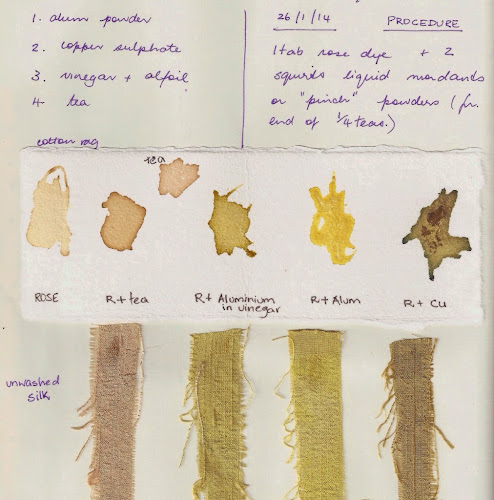 1. alum powder
2. copper sulphate
3. vinegar + alfoil
4- tea
26/1/14 PROCEDURE
1 tab rose dye + 2
squirts liquid mordants
or "pinch" powders (fr.
end of 1/4 teas.)
cotton rag
tea
ROSE
R + tea
R + Aluminium
in vinegar
R + Alum
R + Cu
unwashed
silk